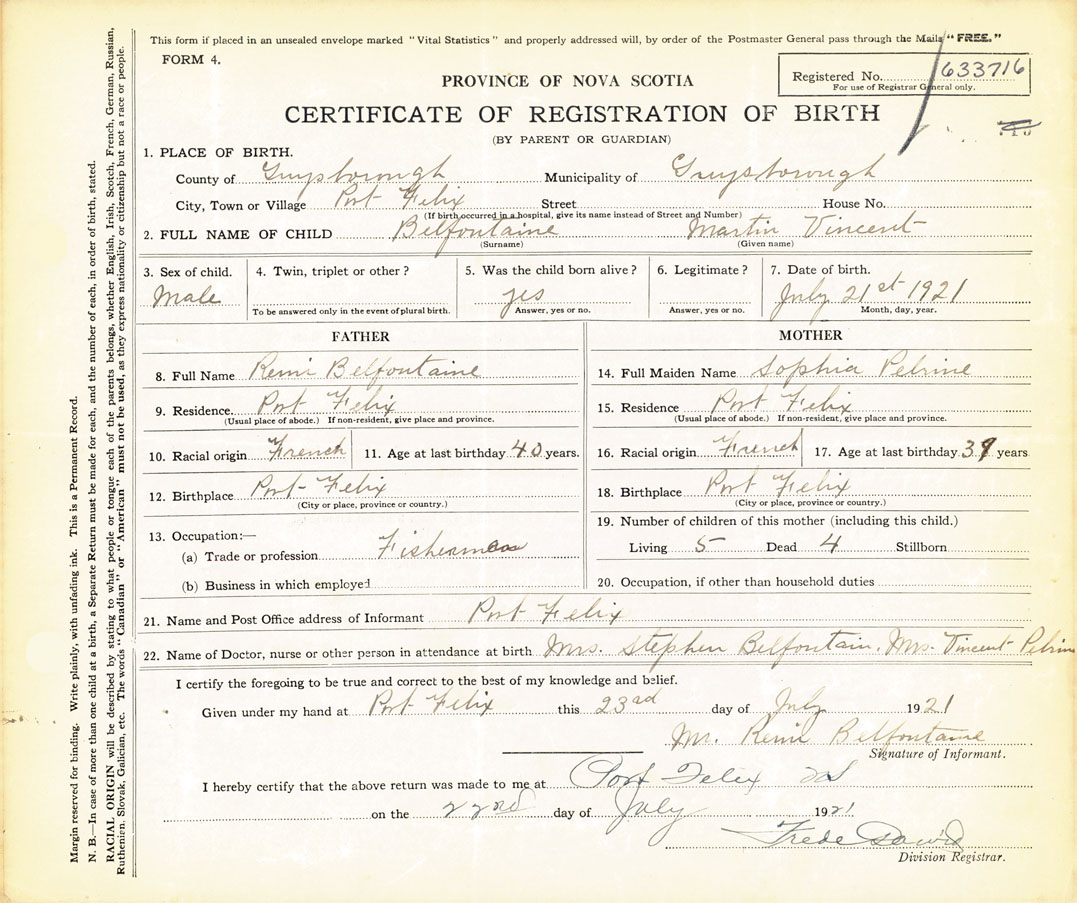 This form if placed in an unsealed envelope marked "Vital Statistics" and properly addressed will, by order of the Postmaster General pass through the Mails "FREE."
FORM 4.
PROVINCE OF NOVA SCOTIA
Registered No. 633716
For use of Registrar General only.
CERTIFICATE OF REGISTRATION OF BIRTH
(BY PARENT OR GUARDIAN)
1. PLACE OF BIRTH.
County of Guysborough Municipality of Guysborough
City, Town or Village Port Felix Street House No.
(If birth occurred in a hospital, give its name instead of Street and Number)
2. FULL NAME OF CHILD Belfontaine Martin Vincent
(Surname) (Given name)
3. Sex of child. 4. Twin, triplet or other? 5. Was the child born alive? 6. Legitimate? 7. Date of birth.
Male yes July 21st 1921
To be answered only in the event of plural birth. Answer, yes or no. Answer, yes or no. Month, day, year.
FATHER MOTHER
8. Full Name Remi Belfontaine 14. Full Maiden Name Sophia Petrine
9. Residence. Port Felix 15. Residence Port Felix
(Usual place of abode.) If non-resident, give place and province. (Usual place of abode.) If non-resident, give place and province.
10. Racial origin French 11. Age at last birthday 40 years. 16. Racial origin French 17. Age at last birthday 39 years
12. Birthplace Port-Felix 18. Birthplace Port Felix
(City or place, province or country.) (City or place, province or country.)
13. Occupation:— 19. Number of children of this mother (including this child.)
(a) Trade or profession Fisherman Living 5 Dead 4 Stillborn
(b) Business in which employed 20. Occupation, if other than household duties
21. Name and Post Office address of Informant Port Felix
22. Name of Doctor, nurse or other person in attendance at birth Mrs. Stephen Belfontain. Mrs. Vincent Petrine
I certify the foregoing to be true and correct to the best of my knowledge and belief.
Given under my hand at Port Felix this 23rd day of July 1921
Mr. Remi Belfontaine
Signature of Informant.
I hereby certify that the above return was made to me at Port Felix
on the 22nd day of July 1921
Division Registrar.
Margin reserved for binding. Write plainly, with unfading ink. This is a Permanent Record.
N. B.—In case of more than one child at a birth, a Separate Return must be made for each, and the number of each, in order of birth, stated.
RACIAL ORIGIN will be described by stating to what people or tongue each of the parents belongs, whether English, Irish, Scotch, French, German, Russian,
Ruthenien, Slovak, Galician, etc. The words "Canadian" or "American" must not be used, as they express nationality or citizenship but not a race or people.